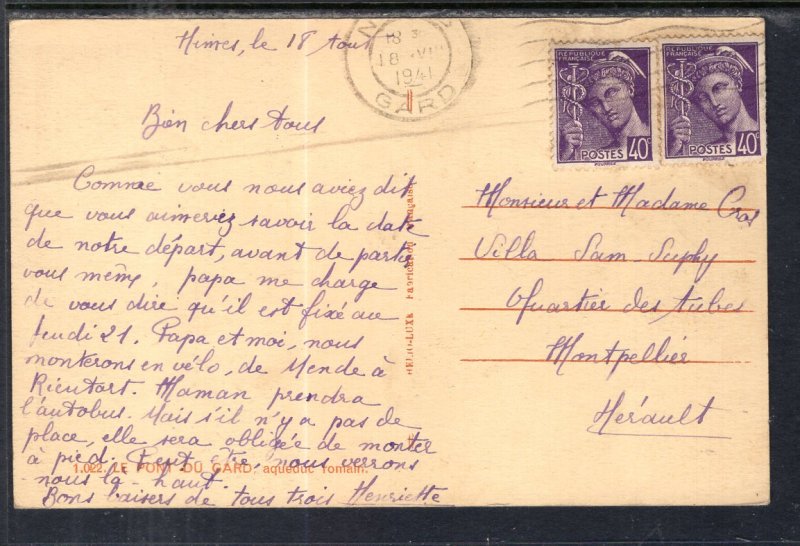 Nîmes, le 18 Aout
Bien chers tous
Comme vous nous aviez dit
que vous aimeriez savoir la date
de notre départ, avant de partir
vous même, papa me charge
de vous dire qu'il est fixé au
Jeudi 21. Papa et moi, nous
monterons en vélo, de Mende à
Rieutort. Maman prendra
l'autobus. Mais s'il n'y a pas de
place, elle sera obligée de monter
à pied. Peut être, nous verrons
nous là-haut.
Bons baisers de tous trois Henriette
1.022. LE PONT DU GARD, aqueduc romain.
HELIO-LUXE Fabrication Française
18
18 VIII
1941
GARD
REPUBLIQUE FRANÇAISE
POSTES 40c
REPUBLIQUE FRANÇAISE
POSTES 40c
Monsieur et Madame Cros
Villa Sam-Suphy
Quartier des Aubes
Montpellier
Hérault